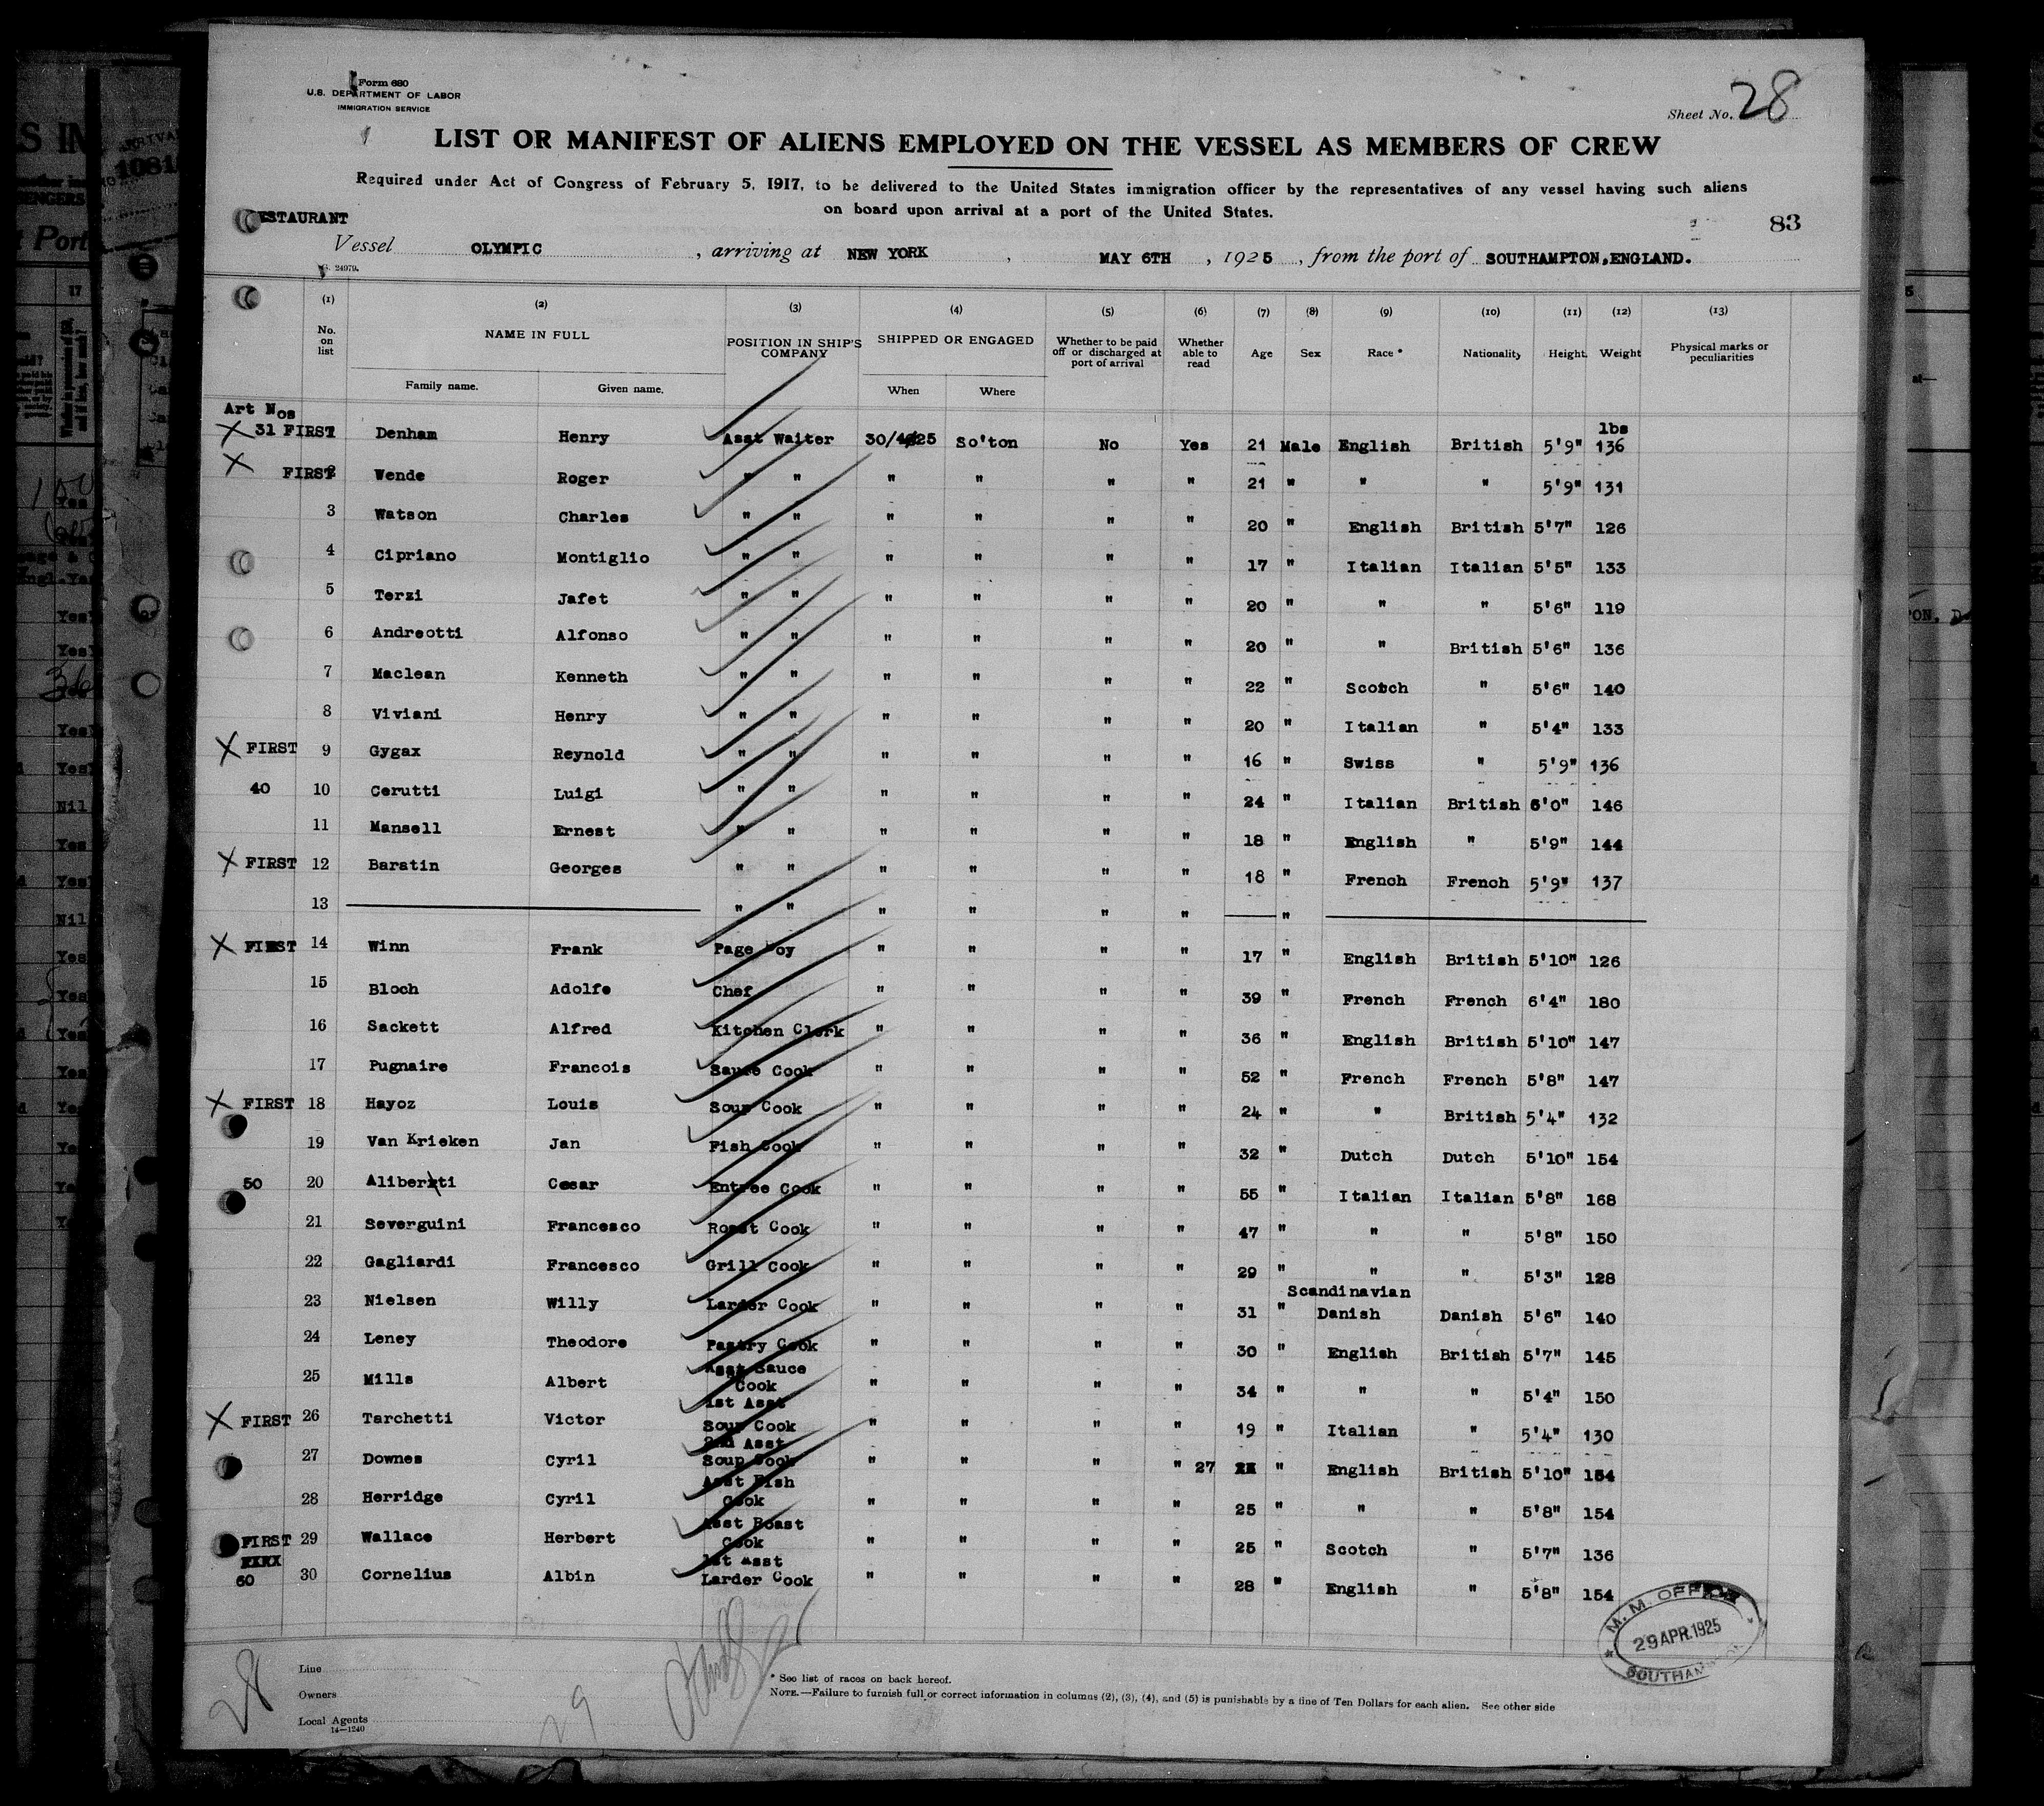 Form 680
U.S. DEPARTMENT OF LABOR
IMMIGRATION SERVICE
Sheet No. 28
LIST OR MANIFEST OF ALIENS EMPLOYED ON THE VESSEL AS MEMBERS OF CREW
Required under Act of Congress of February 5, 1917, to be delivered to the United States immigration officer by the representatives of any vessel having such aliens
on board upon arrival at a port of the United States.
ESTAURANT
83
Vessel OLYMPIC, arriving at NEW YORK, MAY 6TH, 1925, from the port of SOUTHAMPTON, ENGLAND.
24979.
(1) (2) (3) (4) (5) (6) (7) (8) (9) (10) (11) (12) (13)
No. on list NAME IN FULL POSITION IN SHIP'S COMPANY SHIPPED OR ENGAGED Whether to be paid off or discharged at port of arrival Whether able to read Age Sex Race * Nationality Height Weight Physical marks or peculiarities
Family name. Given name. When Where
Art Nos
X 31 FIRST Denham Henry Asst Waiter 30/4/25 So'ton No Yes 21 Male English British 5'9" lbs 136
X FIRST 2 Wende Roger " " " " " " 21 " " " 5'9" 131
3 Watson Charles " " " " " " 20 " English British 5'7" 126
4 Cipriano Montiglio " " " " " " 17 " Italian Italian 5'5" 133
5 Terzi Jafet " " " " " " 20 " " " 5'6" 119
6 Andreotti Alfonso " " " " " " 20 " " British 5'6" 136
7 Maclean Kenneth " " " " " " 22 " Scotch " 5'6" 140
8 Viviani Henry " " " " " " 20 " Italian " 5'4" 133
X FIRST 9 Gygax Reynold " " " " " " 16 " Swiss " 5'9" 136
40 10 Cerutti Luigi " " " " " " 24 " Italian British 6'0" 146
11 Mansell Ernest " " " " " " 18 " English " 5'9" 144
X FIRST 12 Baratin Georges " " " " " " 18 " French French 5'9" 137
13 " " " " " " "
X FIRST 14 Winn Frank Page Boy " " " " 17 " English British 5'10" 126
15 Bloch Adolfe Chef " " " " 39 " French French 6'4" 180
16 Sackett Alfred Kitchen Clerk " " " " 36 " English British 5'10" 147
17 Pugnaire Francois Sauce Cook " " " " 52 " French French 5'8" 147
X FIRST 18 Hayoz Louis Soup Cook " " " " 24 " " British 5'4" 132
19 Van Krieken Jan Fish Cook " " " " 32 " Dutch Dutch 5'10" 154
50 20 Aliberti Cesar Entree Cook " " " " 55 " Italian Italian 5'8" 168
21 Severguini Francesco Roast Cook " " " " 47 " " " 5'8" 150
22 Gagliardi Francesco Grill Cook " " " " 29 " " " 5'3" 128
23 Nielsen Willy Larder Cook " " " " 31 " Scandinavian Danish Danish 5'6" 140
24 Leney Theodore Pastry Cook " " " " 30 " English British 5'7" 145
25 Mills Albert Asst Sauce Cook " " " " 34 " " " 5'4" 150
X FIRST 26 Tarchetti Victor 1st Asst Soup Cook " " " " 19 " Italian " 5'4" 130
27 Downes Cyril 2nd Asst Soup Cook " " " " 27 " English British 5'10" 154
28 Herridge Cyril Asst Fish Cook " " " " 25 " " " 5'8" 154
FIRST 29 Wallace Herbert Asst Roast Cook " " " " 25 " Scotch " 5'7" 136
60 30 Cornelius Albin 1st Asst Larder Cook " " " " 28 " English " 5'8" 154
M. M. OFFICE
29 APR. 1925
SOUTHAMPTON
28
29
Line
Owners
Local Agents
14—1240
* See list of races on back hereof.
NOTE.—Failure to furnish full or correct information in columns (2), (3), (4), and (5) is punishable by a fine of Ten Dollars for each alien. See other side